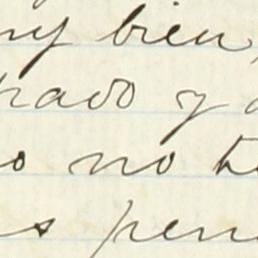 ny bien,
rado y a
o no te
s pen